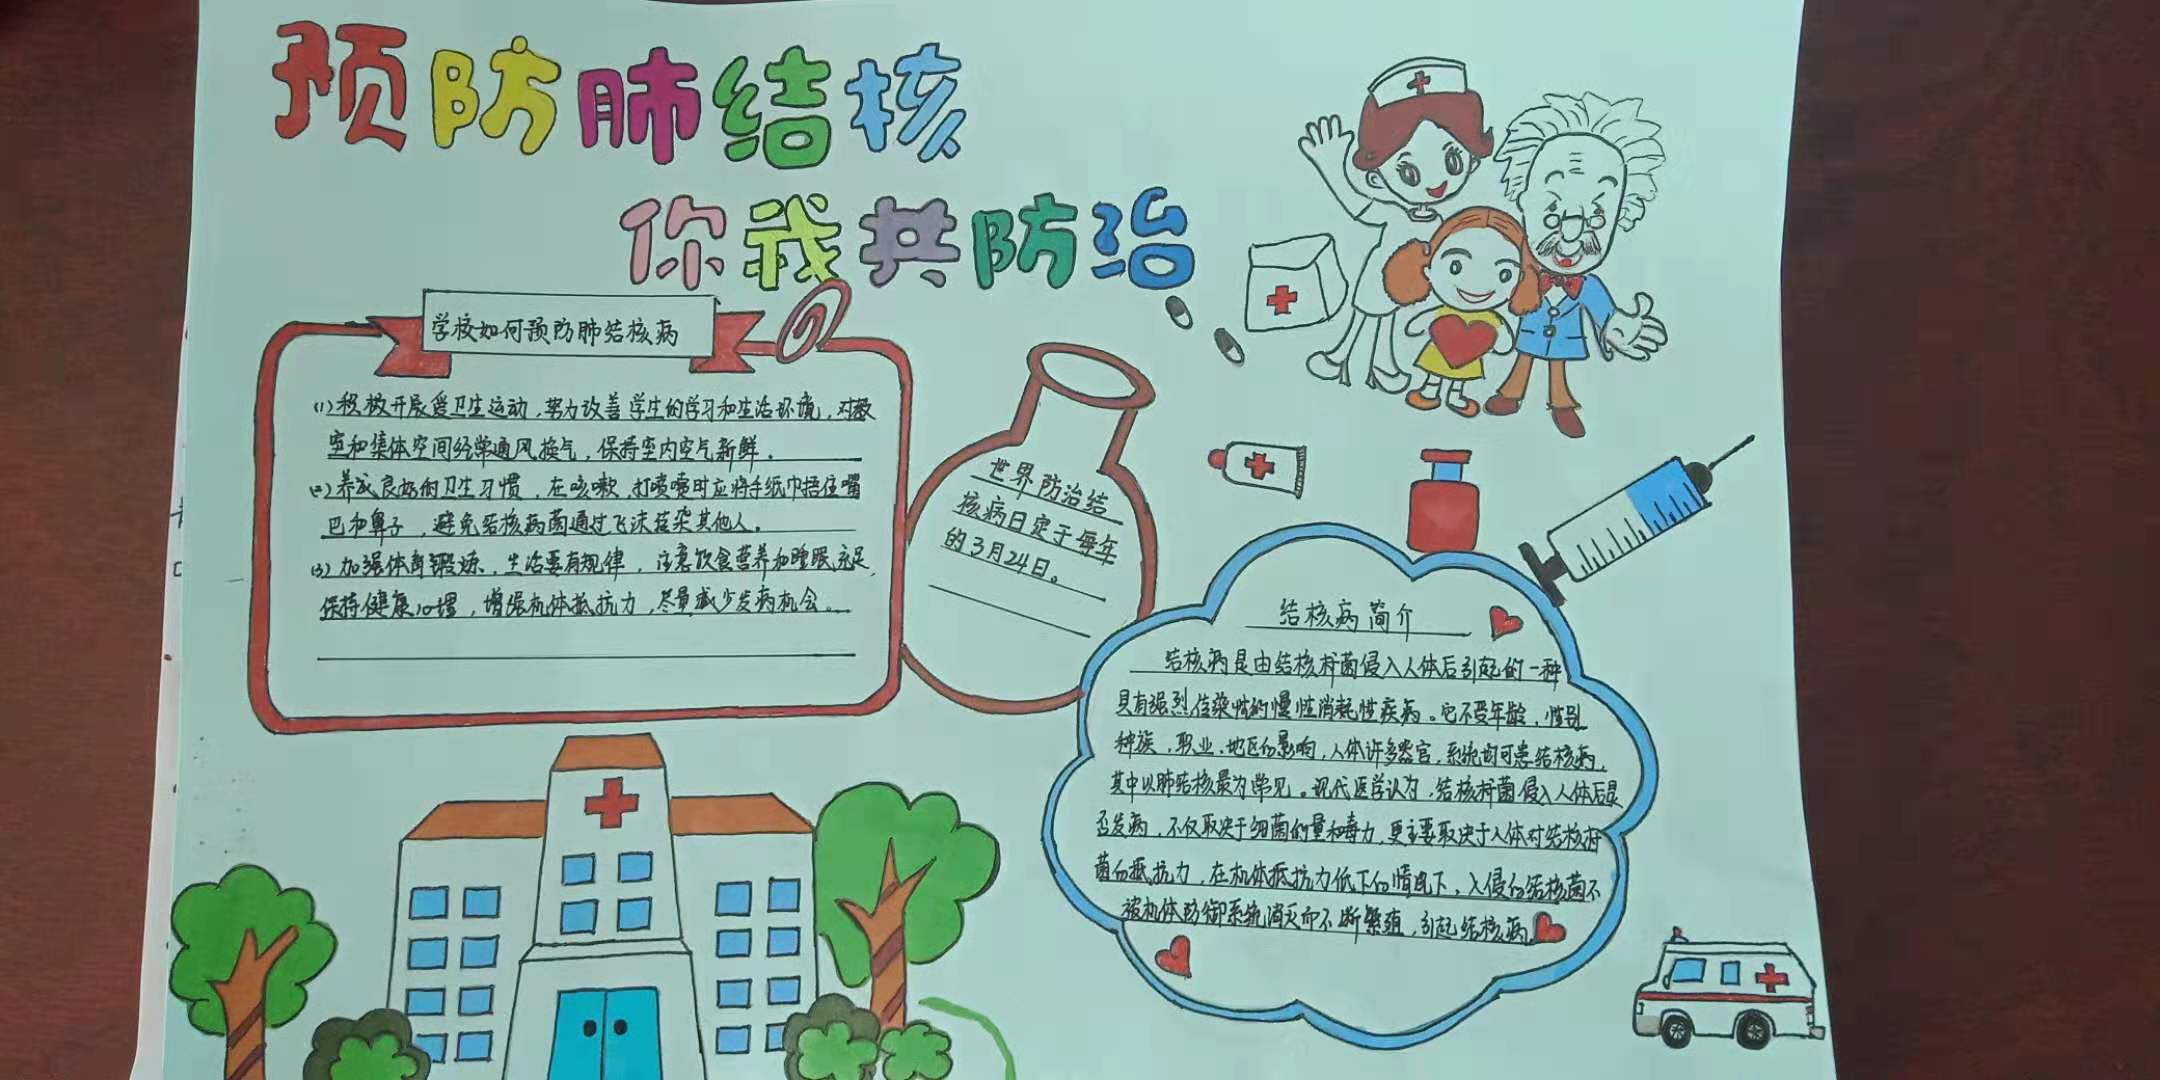 预防肺结核
你我共防治
学校如何预防肺结核病
(1)积极开展爱卫生运动,努力改善学生的学习和生活环境,对教
室和集体空间经常通风换气,保持室内空气新鲜.
(2)养成良好的卫生习惯,在咳嗽,打喷嚏时应将手纸巾捂住嘴
巴和鼻子,避免结核病菌通过飞沫传染其他人。
(3)加强体育锻炼,生活要有规律,注意饮食营养和睡眠充足,
保持健康心理,增强机体抵抗力,尽量减少发病机会。
世界防治结
核病日定于每年
的3月24日。
结核病简介
结核病是由结核杆菌侵入人体后引起的一种
具有强烈传染性的慢性消耗性疾病。它不受年龄,性别
种族,职业,地区的影响,人体许多器官,系统均可患结核病,
其中以肺结核最为常见。现代医学认为,结核杆菌侵入人体后是
否发病,不仅取决于细菌的量和毒力,更主要取决于人体对结核杆
菌的抵抗力,在机体抵抗力低下的情况下,入侵的结核菌不
被机体防御系统消灭而不断繁殖,引起结核病。